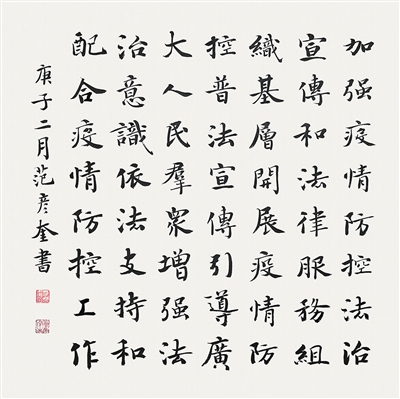 加强疫情防控法治
宣傳和法律服務組
織基層開展疫情防
控普法宣傳引導廣
大人民羣眾增强法
治意識依法支持和
配合疫情防控工作
庚子二月范彦奎書